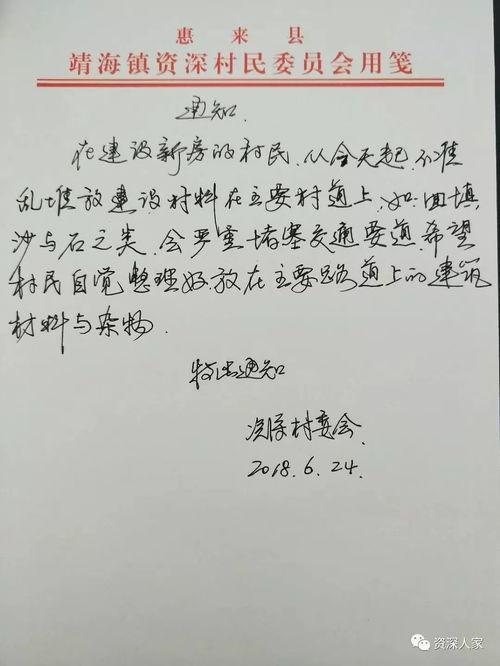 惠来县
靖海镇资深村民委员会用笺
通知.
在建设新房的村民,从今天起,不准
乱堆放建设材料在主要村道上,如:回填
沙与石之类,会严重堵塞交通要道,希望
村民自觉整理好放在主要路道上的建筑
材料与杂物.
特此通知
资深村委会.
2018.6.24.
资深人家